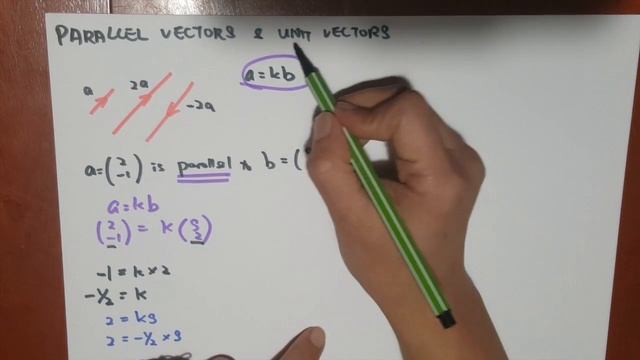 PARALLEL VECTORS & UNIT VECTORS
a = kb
a 2a -2a
a = (2 -1) is parallel to b = (
a = kb
(2 -1) = k (s 2)
-1 = k × 2
-1/2 = k
2 = ks
2 = -1/2 × s